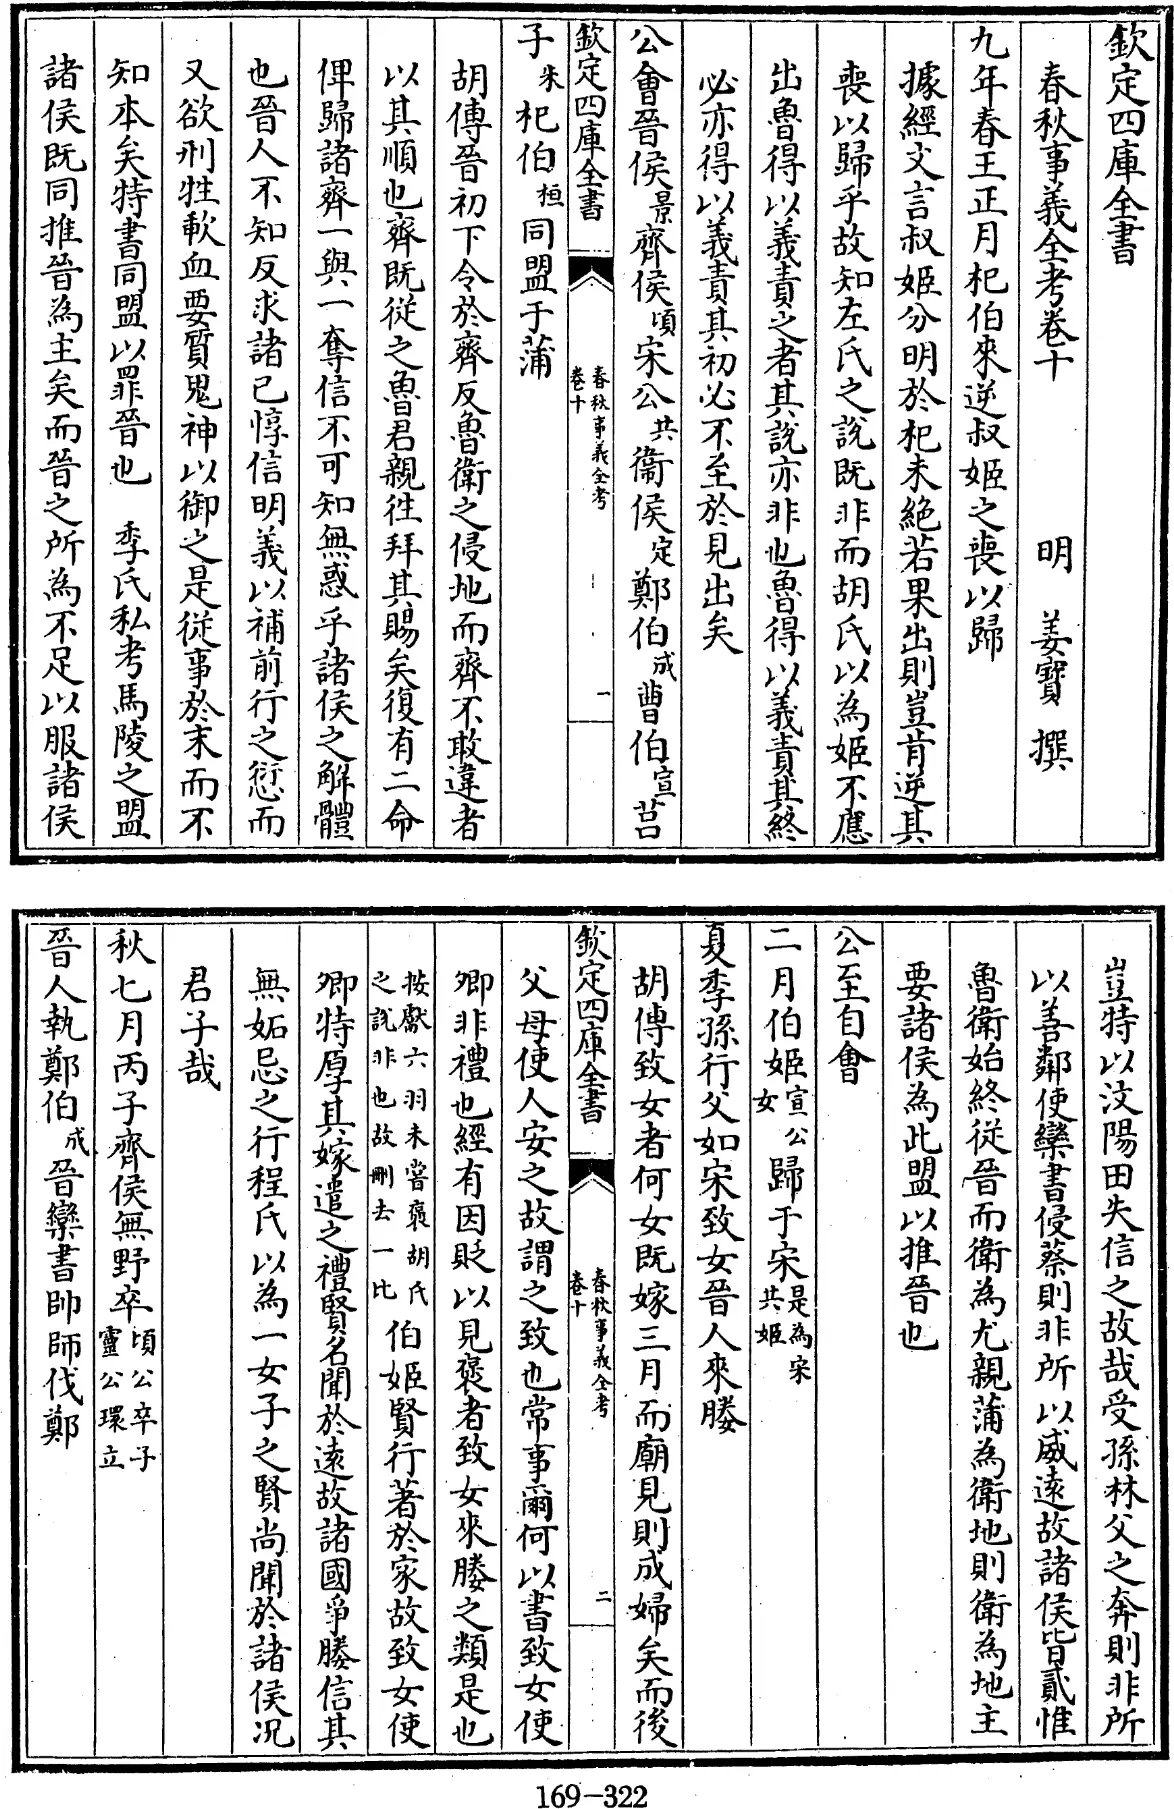 欽定四庫全書
春秋事義全考卷十　明　姜寶　撰
九年春王正月杞伯來逆叔姬之喪以歸
據經文言叔姬分明於杞未絕若果出則豈肯逆其
喪以歸乎故知左氏之說既非而胡氏以為姬不應
出魯得以義責之者其說亦非也魯得以義責其終
必亦得以義責其初必不至於見出矣
公會晉侯景齊侯頃宋公共衞侯定鄭伯成曹伯宣莒
欽定四庫全書　春秋事義全考卷十　一
子朱杞伯桓同盟于蒲
胡傳晉初下令於齊反魯衛之侵地而齊不敢違者
以其順也齊既從之魯君親往拜其賜矣復有二命
俾歸諸齊一與一奪信不可知無惑乎諸侯之解體
也晉人不知反求諸已惇信明義以補前行之愆而
又欲刑牲歃血要質鬼神以御之是從事於末而不
知本矣特書同盟以罪晉也　季氏私考馬陵之盟
諸侯既同推晉為主矣而晉之所為不足以服諸侯
豈特以汶陽田失信之故哉受孫林父之奔則非所
以善鄰使欒書侵蔡則非所以威遠故諸侯皆貳惟
魯衛始終從晉而衛為尤親蒲為衛地則衛為地主
要諸侯為此盟以推晉也
公至自會
二月伯姬宣公女歸于宋是為宋共姬
夏季孫行父如宋致女晉人來媵
胡傳致女者何女既嫁三月而廟見則成婦矣而後
欽定四庫全書　春秋事義全考卷十　二
父母使人安之故謂之致也常事爾何以書致女使
卿非禮也經有因貶以見褒者致女來媵之類是也
按獻六羽未嘗褒胡氏之說非也故刪去一比伯姬賢行著於家故致女使
卿特厚其嫁遣之禮賢名聞於遠故諸國爭媵信其
無妬忌之行程氏以為一女子之賢尚聞於諸侯况
君子哉
秋七月丙子齊侯無野卒頃公卒子靈公環立
晉人執鄭伯成晉欒書帥師伐鄭
169-322